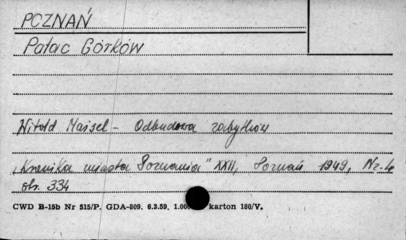 POZNAŃ
Pałac Górków
Witold Maisel – Odbudowa zabytków
„Kronika miasta Poznania" XXII, Poznań 1949, Nr. 4
str. 334
CWD B-15b Nr 515/P. GDA-809. 6.3.59. 1.00 karton 180/V.